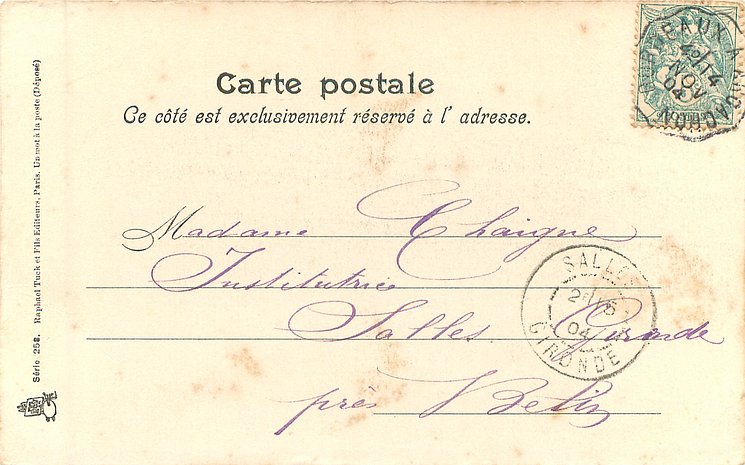 Carte postale
Ce côté est exclusivement réservé à l' adresse.
Madame Chaigne
Institutrice
Salles Gironde
près Belin
SALLES
GIRONDE
04
14
NOV
04
Série 258. Raphael Tuck et Fils Editeurs, Paris. Un mot à la poste (Déposé)